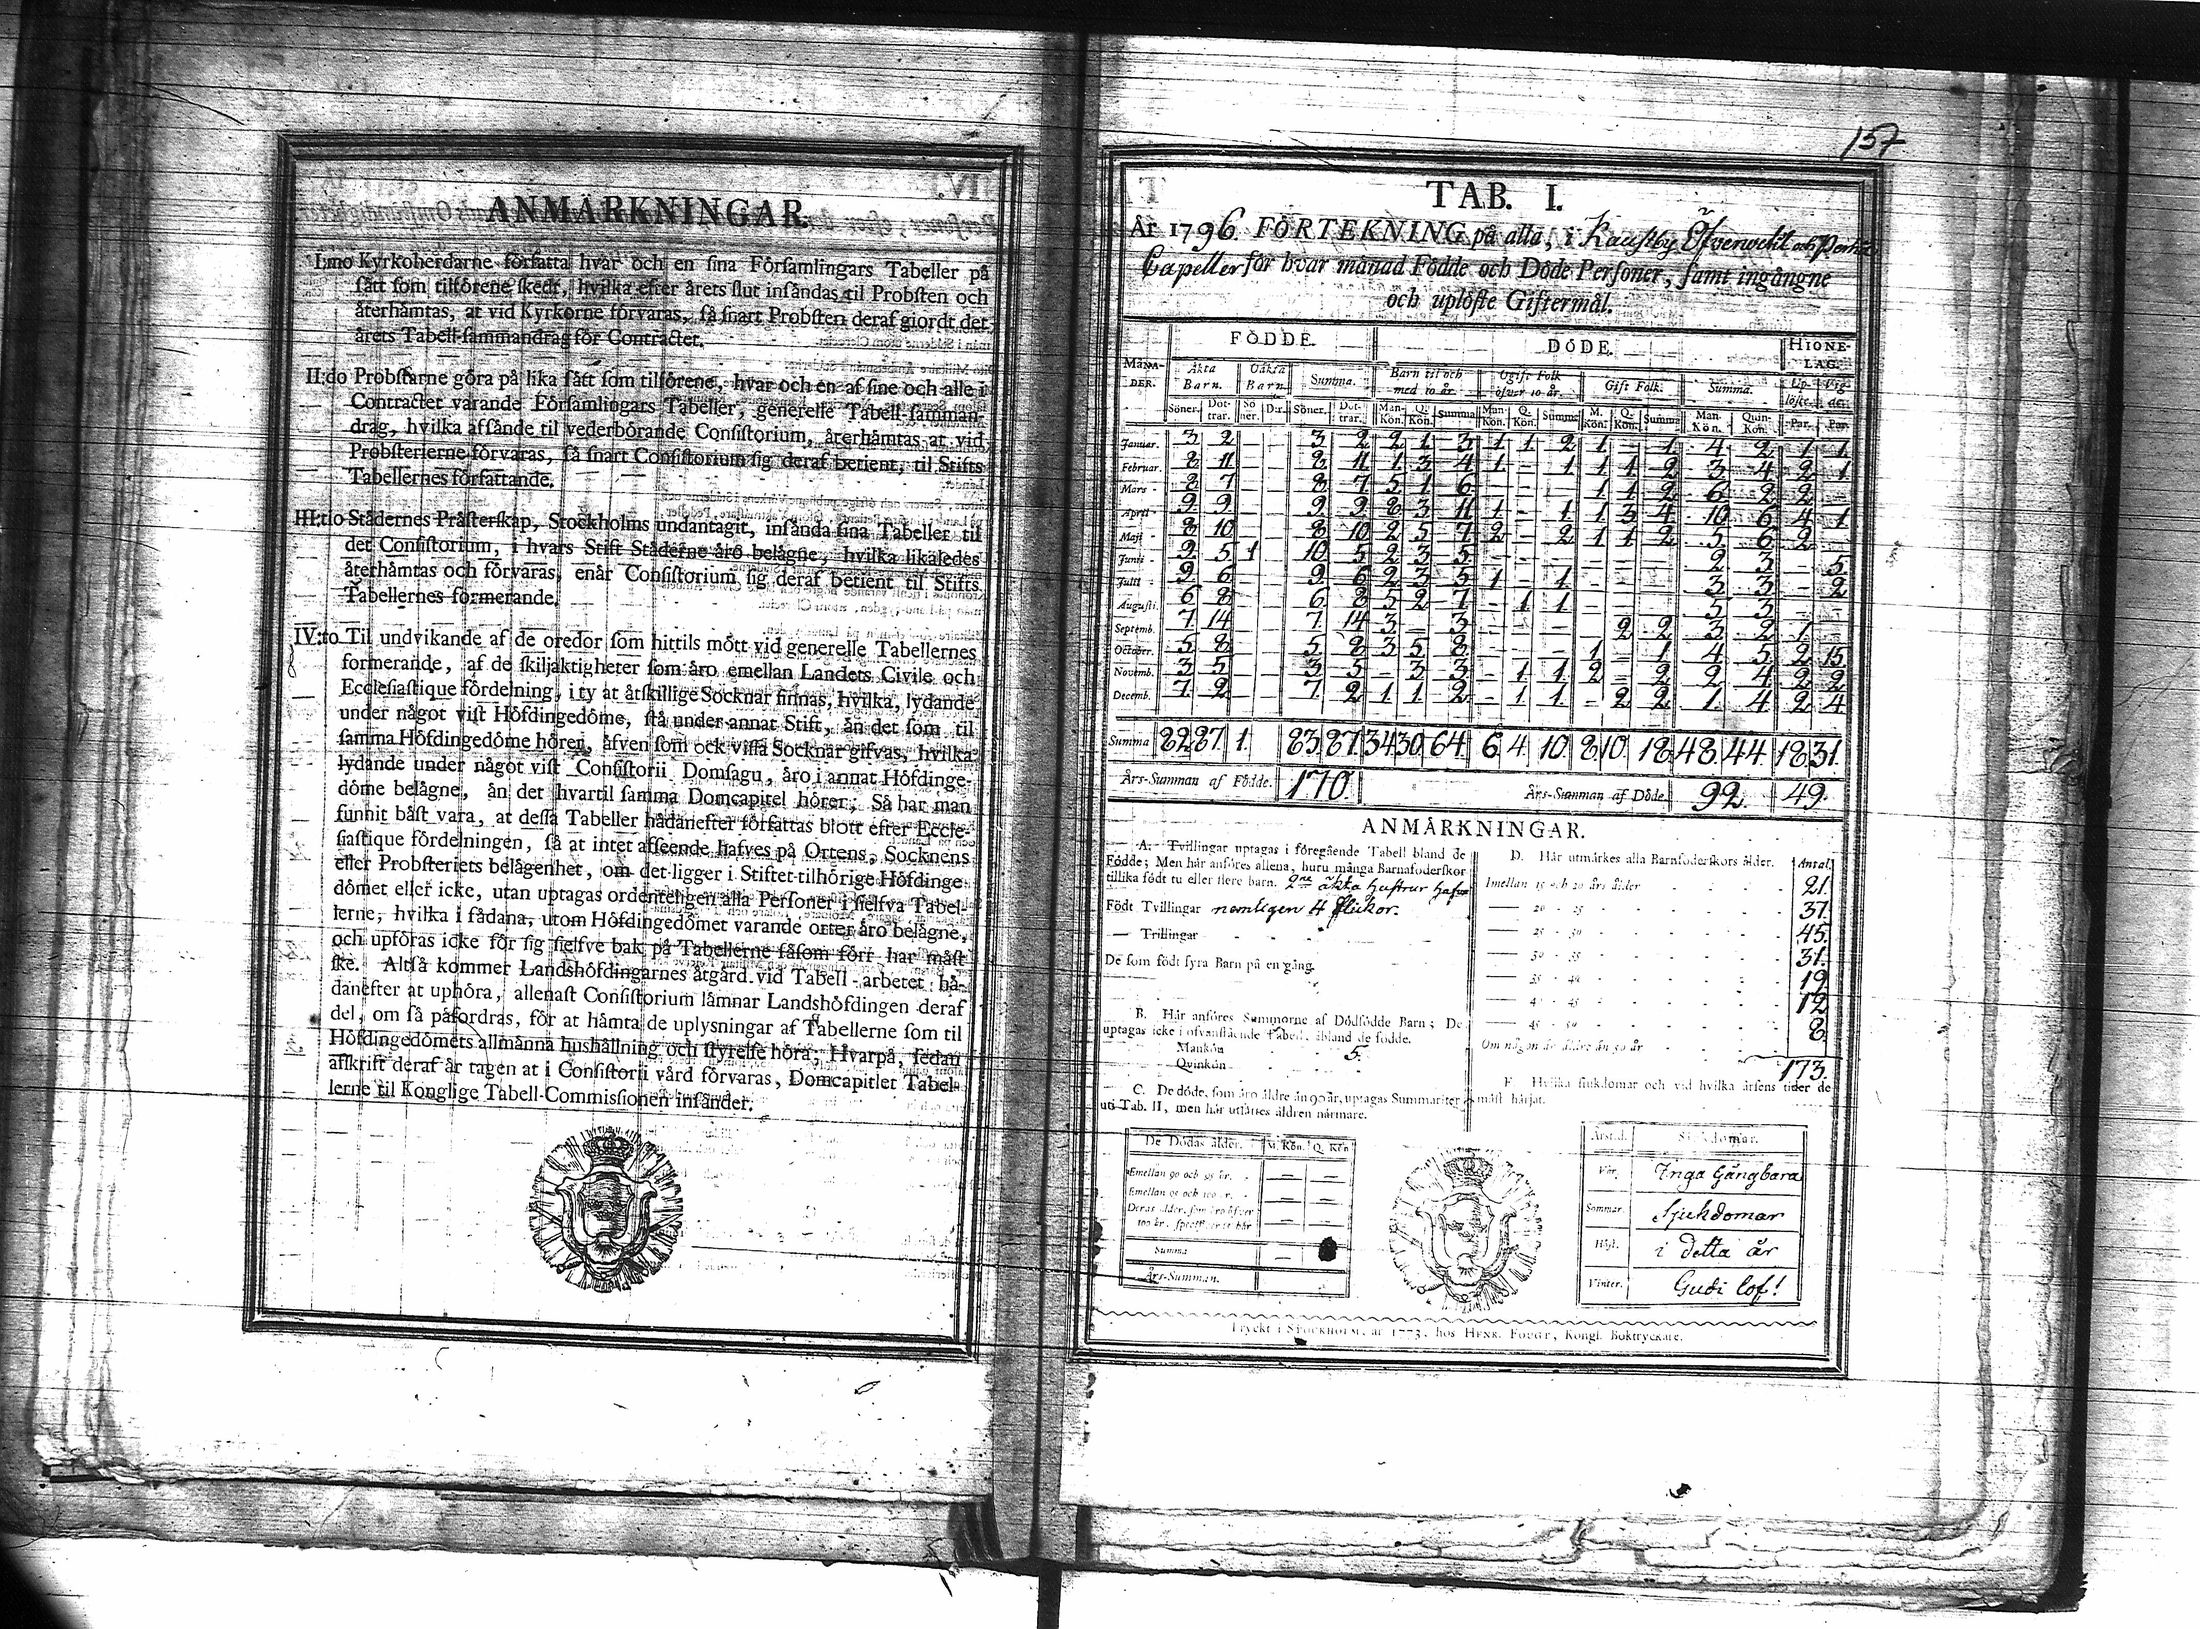 ANMÄRKNINGAR.
I:mo Kyrkoherdarne författa hvar och en sina Församlingars Tabeller på
sätt som tilförene skedt, hvilka efter årets slut insändas til Probsten och
återhämtas, at vid Kyrkorne förvaras, så snart Probsten deraf giordt det
årets Tabell-sammandrag för Contractet.
II:do Probstarne göra på lika sätt som tilförene, hvar och en af sine och alle i
Contractet varande Församlingars Tabeller, generelle Tabell-samman-
drag, hvilka afsände til vederbörande Consistorium, återhämtas at vid
Probsterierne förvaras, så snart Consistorium sig deraf betient, til Stifts
Tabellernes författande.
III:tio Städernes Prästerskap, Stockholms undantagit, insända sina Tabeller til
det Consistorium, i hvars Stift Städerne äro belägne, hvilka likaledes
återhämtas och förvaras, enär Consistorium sig deraf betient til Stifts
Tabellernes formerande.
IV:to Til undvikande af de oredor som hittils mött vid generelle Tabellernes
formerande, af de skiljaktigheter som äro emellan Landets Civile och
Ecclesiastique fördelning, i ty at åtskillige Socknar finnas, hvilka, lydande
under något vist Höfdingedöme, stå under annat Stift, än det som til
samma Höfdingedöme hörer, äfven som ock vissa Socknar gifvas, hvilka
lydande under något vist Consistorii Domsagu, äro i annat Höfdinge-
döme belägne, än det hvartil samma Domcapitel hörer; Så har man
funnit bäst vara, at dessa Tabeller hädanefter författas blott efter Eccle-
siastique fördelningen, så at intet afseende hafves på Ortens, Socknens
eller Probsteriets belägenhet, om det ligger i Stiftet tilhörige Höfdinge-
dömet eller icke, utan uptagas ordenteligen alla Personer i sielfva Tabel-
lerne, hvilka i sådana, utom Höfdingedömet varande orter äro belägne,
och upföras icke för sig sielfve bak på Tabellerne såsom förr har måst
ske. Altså kommer Landshöfdingarnes åtgärd vid Tabell-arbetet hä-
danefter at uphöra, allenast Consistorium lämnar Landshöfdingen deraf
del, om så påfordras, för at hämta de uplysningar af Tabellerne som til
Höfdingedömets allmänna hushållning och styrelse höra; Hvarpå, sedan
afskrift deraf är tagen at i Consistorii vård förvaras, Domcapitlet Tabel-
lerne til Konglige Tabell-Commissionen insänder.
157
TAB. I.
År 1796. FÖRTEKNING på alla, i Kaustby Öfverwetil och Perho
Capeller för hvar månad Födde och Döde Personer, samt ingångne
och uplöste Giftermål.
FÖDDE. DÖDE. HIONE-LAG.
MÅNA-DER. Äkta Barn. Oäkta Barn. Summa. Barn til och med 10 år. Ogift Folk öfver 10 år. Gift Folk. Summa. Up-löste. Vig-de.
Söner. Dot-trar. Sö ner. D:r. Söner. Dot-trar. Man-Kön. Q. Kön. Summa Man Kön. Q. Kön. Summa M. Kön. Q. Kön. Summa Man-Kön. Quin-Kön. Par. Par.
Januar. 3 2 — — 3 2 2 1 3 1 1 2 1 — 1 4 2 1 1
Februar. 8 11 — — 8 11 1 3 4 1 — 1 1 1 2 3 4 2 1
Mars 8 7 — — 8 7 5 1 6 — — — 1 1 2 6 2 2 —
April 9 9 — — 9 9 8 3 11 1 — 1 1 3 4 10 6 4 1
Maji 8 10 — — 8 10 2 5 7 2 — 2 1 1 2 5 6 2 —
Junii 9 5 1 10 5 2 3 5 — — — — — — 2 3 — 5
Julii 9 6 — — 9 6 2 3 5 1 — 1 — — — 3 3 — 2
Augusti. 6 8 — — 6 8 5 2 7 — 1 1 — — — 5 3 — —
Septemb. 7 14 — — 7 14 3 — 3 — — — — 2 2 3 2 1 —
Octobr. 5 8 — — 5 8 3 5 8 — — — 1 — 1 4 5 2 15
Novemb. 3 5 — — 3 5 — 3 3 — 1 1 2 — 2 2 4 2 2
Decemb. 7 2 — — 7 2 1 1 2 — 1 1 — 2 2 1 4 2 4
Summa 82 87 1. 83 87 34 30 64 6 4 10 8 10 18 48 44 18 31.
Års-Summan af Födde. 170. Års-Summan af Döde 92. 49.
ANMÄRKNINGAR.
A. Tvillingar uptagas i föregående Tabell bland de
Födde; Men här anföres allena, huru många Barnaföderskor
tillika födt tu eller flere barn. 2ne äkta hustrur hafva
Födt Tvillingar nemligen 4 flickor.
— Trillingar
De som födt fyra Barn på en gång.
B. Här anföres Summorne af Dödfödde Barn; De
uptagas icke i ofvanstående Tabell, ibland de födde.
Mankön 5.
Quinkön
C. De döde, som äro äldre än 90 år, uptagas Summariter
uti Tab. II, men här utsättes åldren närmare.
De Dödas ålder. M. Kön. Q. Kön
Emellan 90 och 95 år. — —
Emellan 95 och 100 år. — —
Deras ålder, som äro öfver
100 år, specificeras här — —
Summa —
Års-Summan.
D. Här utmärkes alla Barnföderskors ålder. Antal.
Imellan 15 och 20 års ålder 21.
— 20 - 25 37.
— 25 - 30 45.
— 30 - 35 31.
— 35 - 40 19
— 40 - 45 12
— 45 - 50 8.
Om någon är äldre än 50 år
173.
E. Hvilka siukdomar och vid hvilka årsens tider de
mäst härjat.
Årstid. Siukdomar.
Vår. Inga Gångbara
Sommar. Sjukdomar
Höst. i detta år
Vinter. Gudi lof!
Tryckt i STOCKHOLM, år 1773, hos HENR. FOUGT, Kongl. Boktryckare.